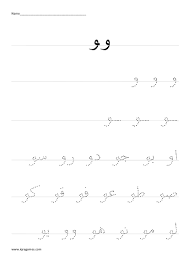 Name:
و و
و و و
ـو ـو ـو
او بو جو دو رو سو
صو طو عو فو قو كو
لو مو نو هو وو يو